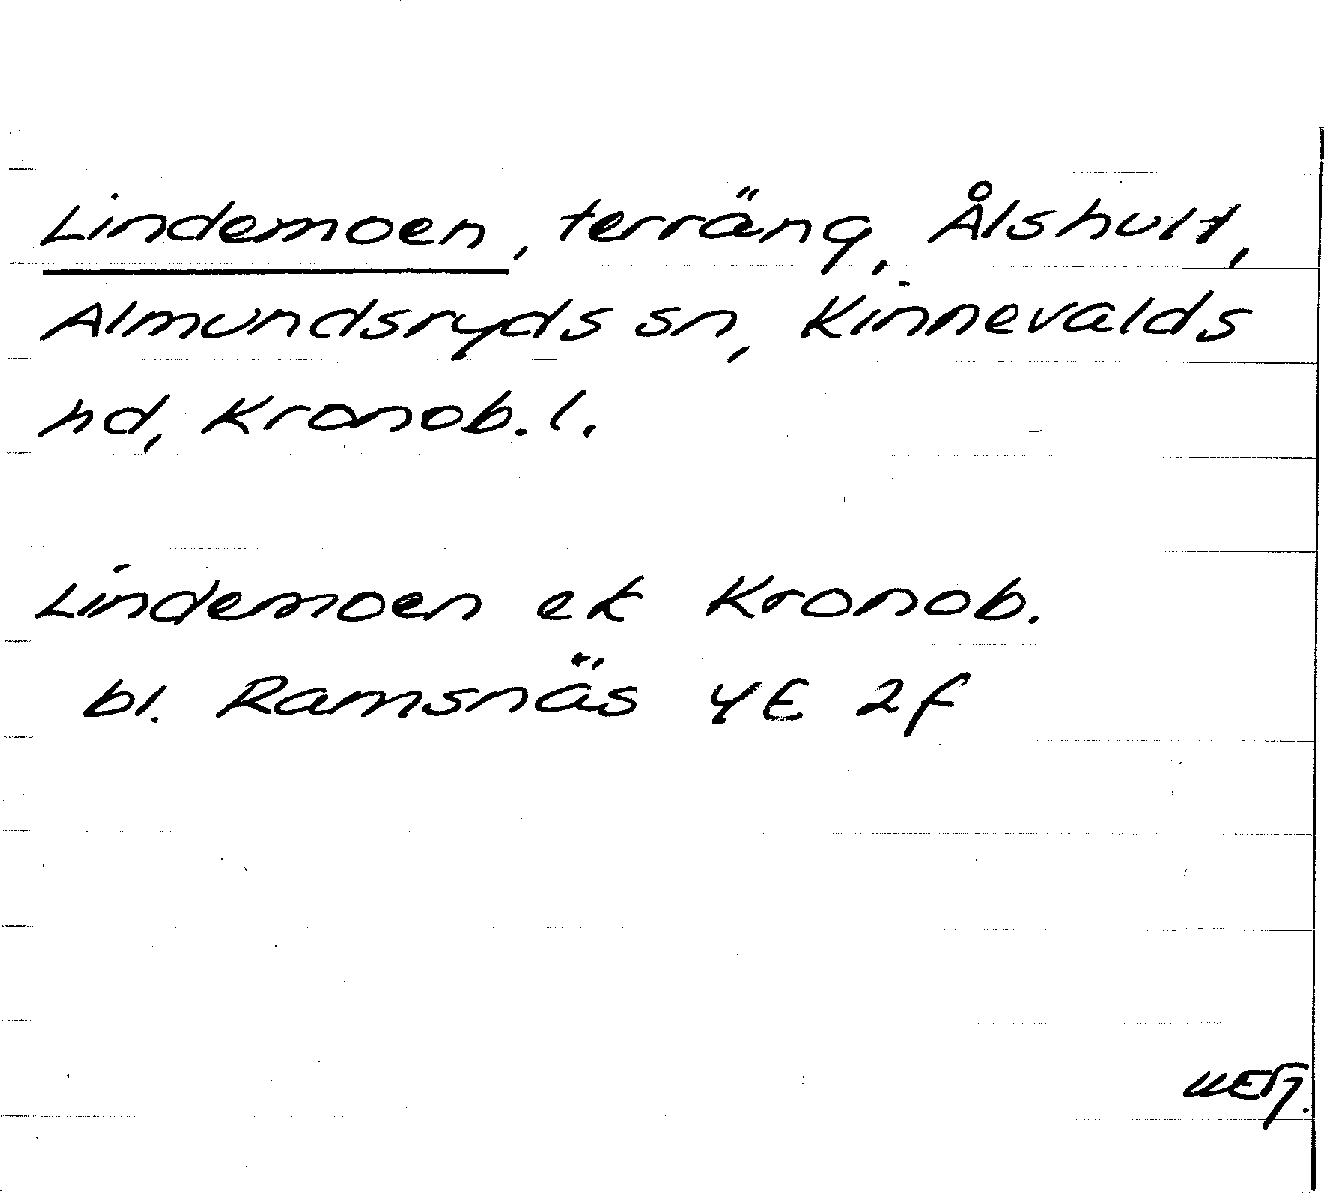 Lindemoen, terräng, Ålshult,
Almundsryds sn, Kinnevalds
hd, Kronob. l.
Lindemoen ek Kronob.
bl. Ramsnäs 4E 2f